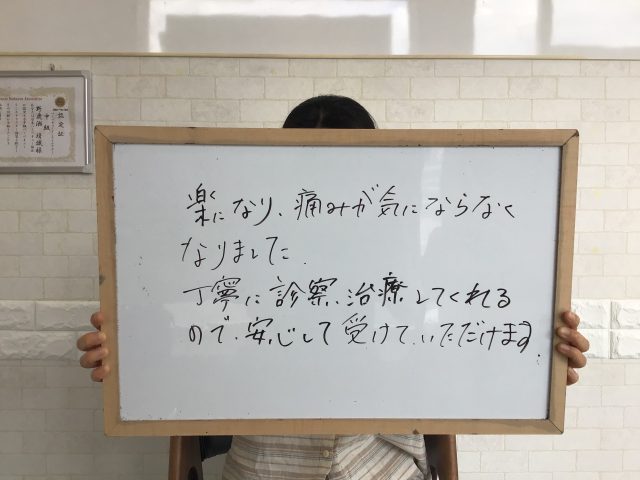 認定証
中級
楽になり、痛みが気にならなく
なりました.
丁寧に診察、治療してくれる
ので、安心して受けて、いただけます.